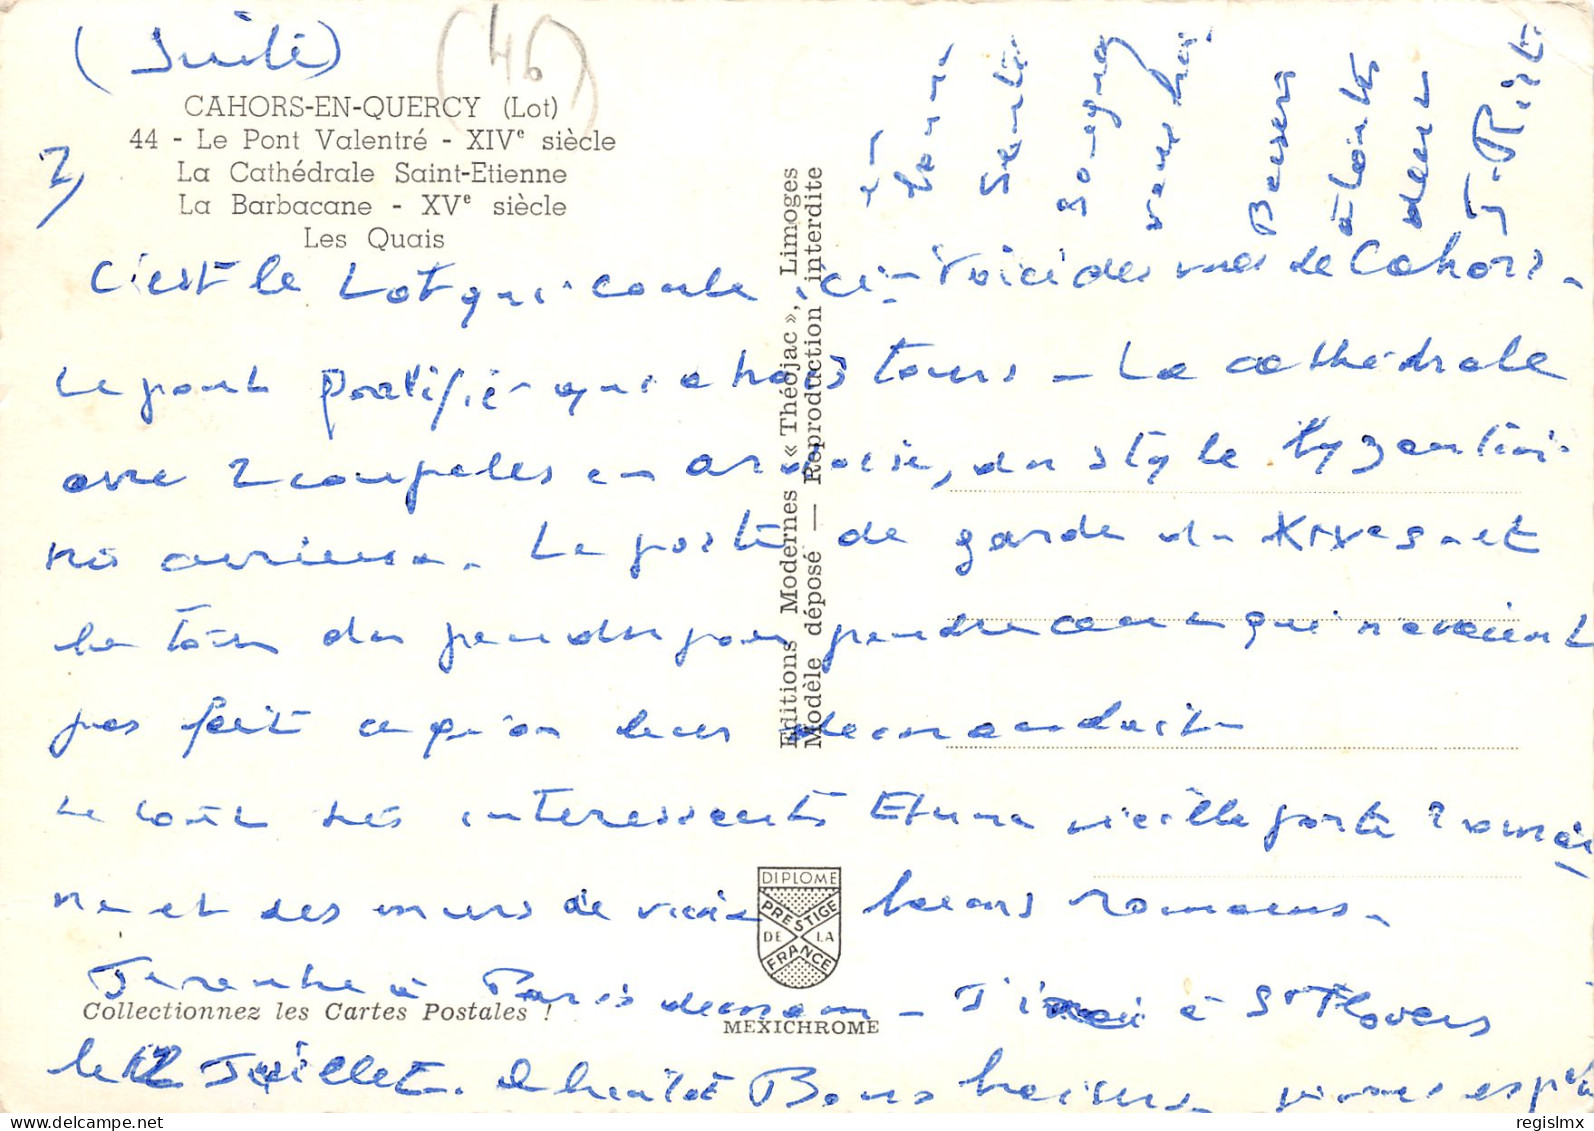 (Suite)
(46)
CAHORS-EN-QUERCY (Lot)
44 - Le Pont Valentré - XIVe siècle
La Cathédrale Saint-Etienne
La Barbacane - XVe siècle
Les Quais
2)
C'est le Lot qui coule ici - Voici des vues de Cahors -
Le pont fortifié qui a trois tours - La cathédrale
avec 2 coupoles en ardoise, du style byzantin
très curieux. Le poste de garde du XIV et
la tour des pendus pour pendre ceux qui n'avaient
pas fait ce qu'on leur demandait
le tout très intéressant Et une vieille porte romai
ne et des murs de vieux bains romains.
Je rentre à Paris demain - J'irai à St Flovers
le 12 Juillet. A bientôt Bons baisers
en bonne
santé
Soignez
vous bien
Baisers
à toutes
deux
Editions Modernes « Théojac », Limoges
Modèle déposé — Reproduction interdite
DIPLOME
PRESTIGE
DE LA
FRANCE
Collectionnez les Cartes Postales !
MEXICHROME
regislmx